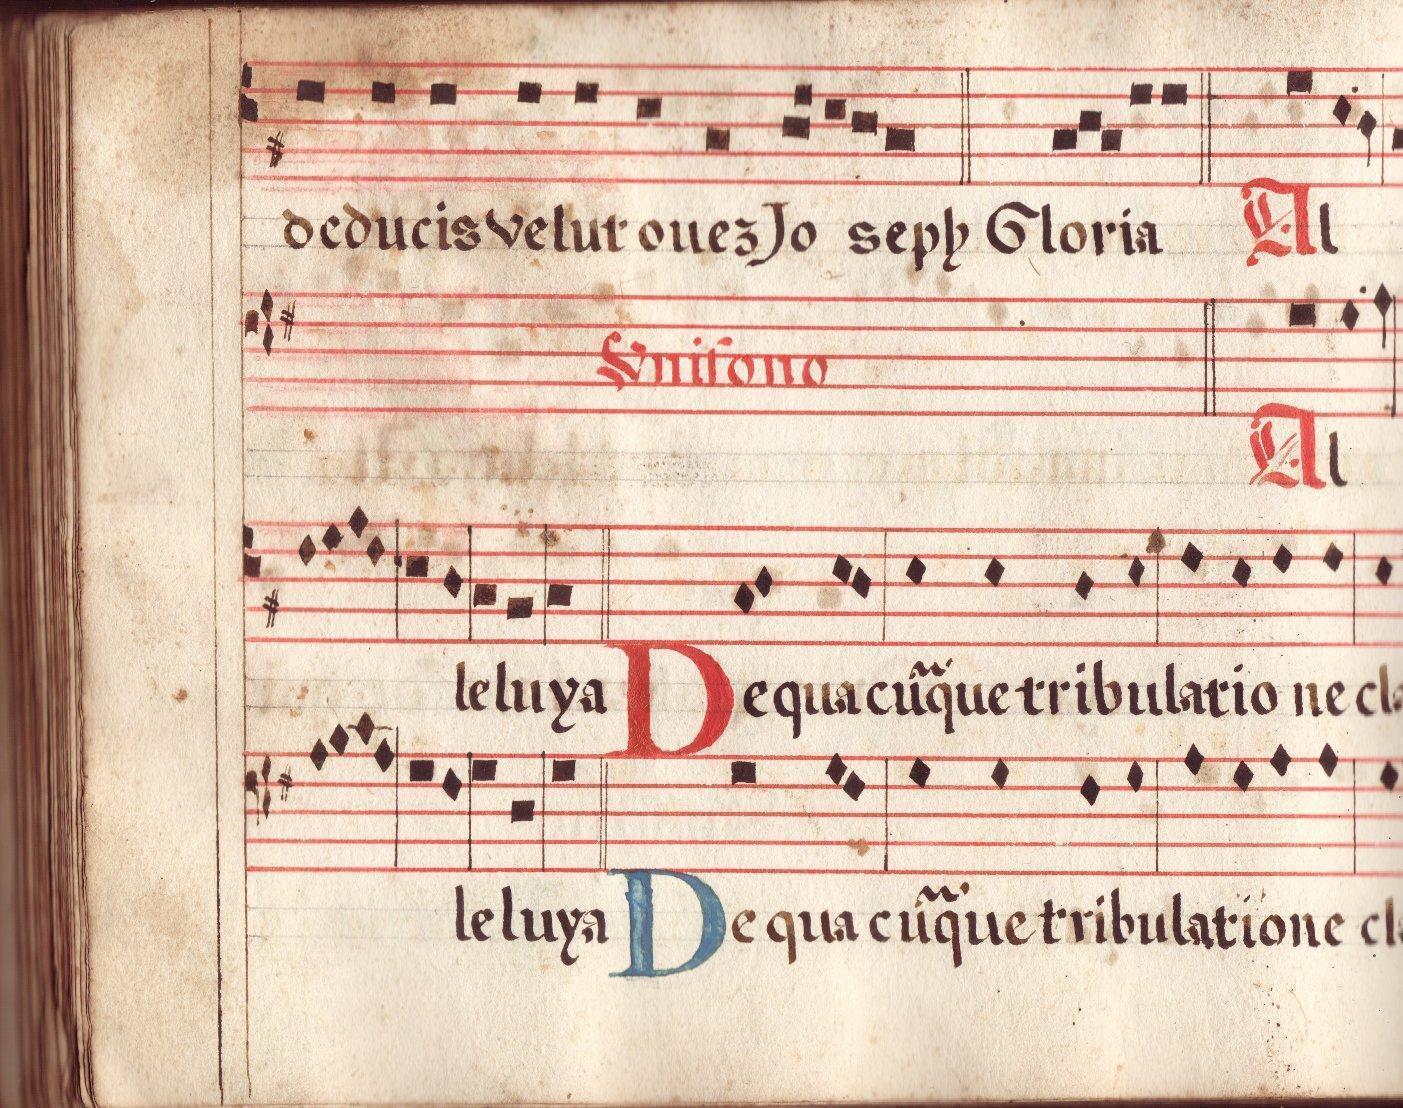 deducis velut ouez Jo seph Gloria Al
Vnisono
Al
leluya De quacũq̃ue tribulatio ne cla
leluya De qua cũq̃ue tribulatione cla